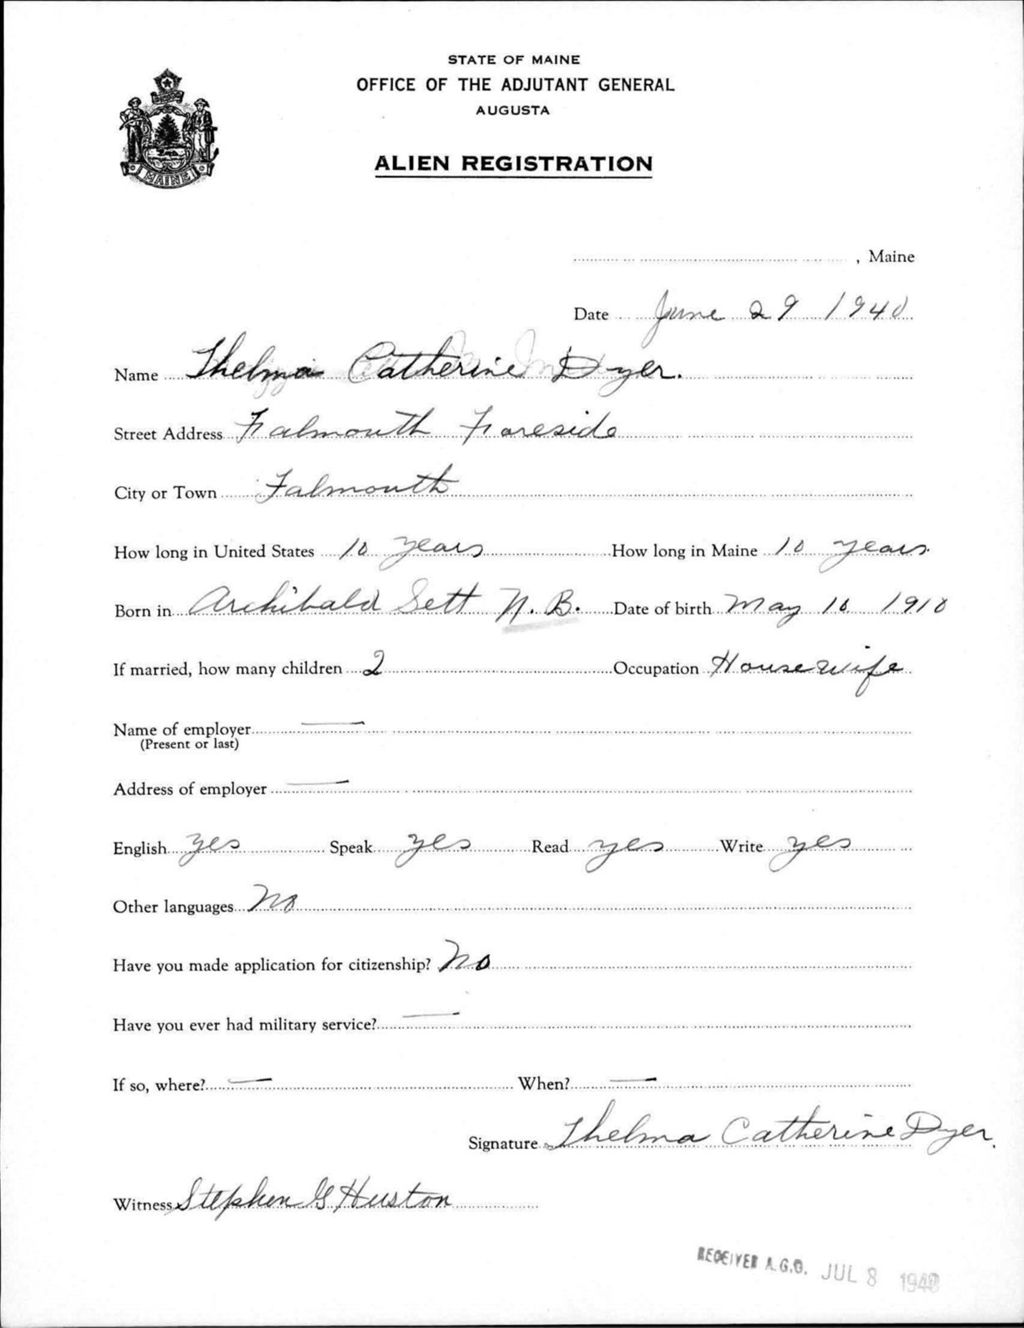 STATE OF MAINE
OFFICE OF THE ADJUTANT GENERAL
AUGUSTA
ALIEN REGISTRATION
MAINE
, Maine
Date June 29 1940
Name Thelma Catherine Dyer.
Street Address Falmouth Foreside
City or Town Falmouth
How long in United States 10 years How long in Maine 10 years
Born in Archibald Sett N. B. Date of birth May 10 1910
If married, how many children 2 Occupation Housewife
Name of employer —
(Present or last)
Address of employer —
English yes Speak yes Read yes Write yes
Other languages No
Have you made application for citizenship? No
Have you ever had military service? —
If so, where? — When? —
Signature Thelma Catherine Dyer.
Witness Stephen G Huston
RECEIVED A.G.O. JUL 8 1940